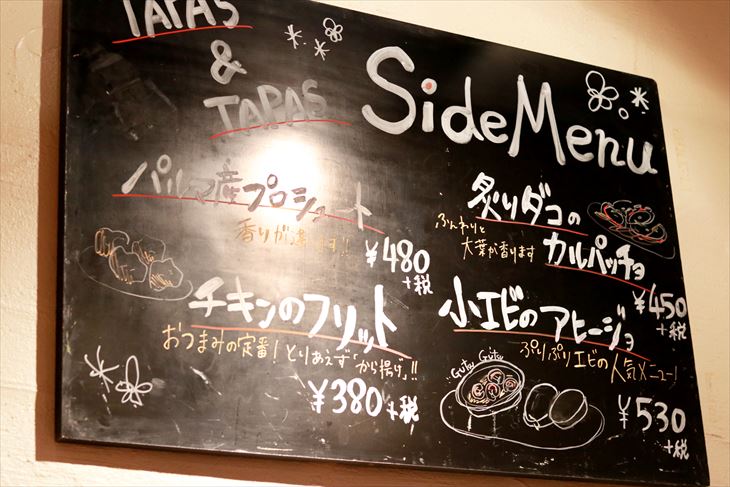 TAPAS
&
TAPAS
Side Menu
パルマ産プロシュート
香りが違います!!
¥480
+税
チキンのフリット
おつまみの定番!とりあえず「から揚げ」!!
¥380 +税
炙りダコの
カルパッチョ
ふんわりと
大葉が香ります
¥450
+税
小エビのアヒージョ
ぷりぷりエビの人気メニュー!
Gutsu Gutsu
¥530
+税